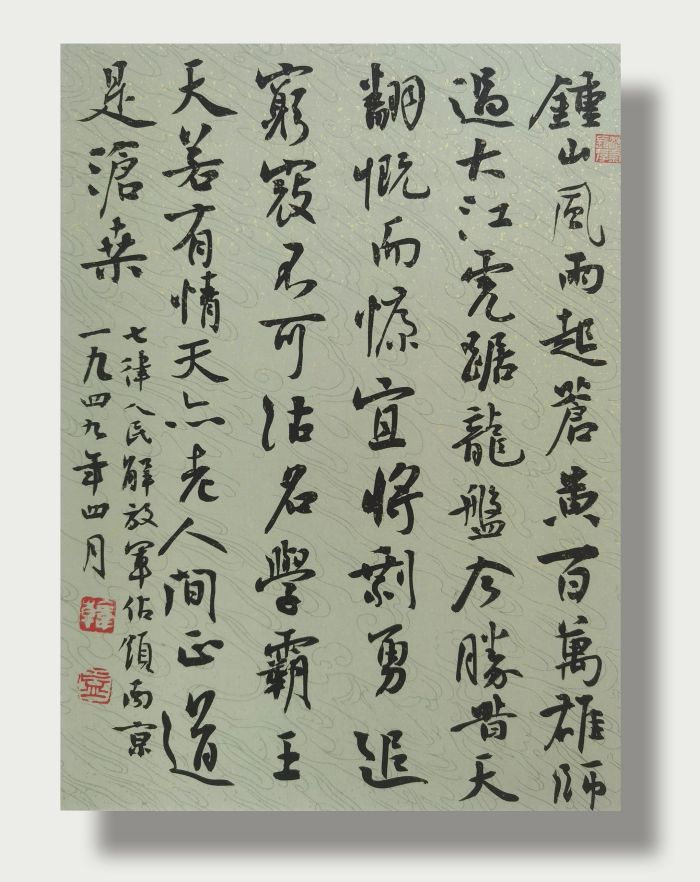 鍾山風雨起蒼黃百萬雄師
過大江虎踞龍盤今勝昔天
翻慨而慷宜將剩勇追
窮寇不可沽名學霸王
天若有情天亦老人間正道
是滄桑
七律人民解放軍佔領南京
一九四九年四月
韓